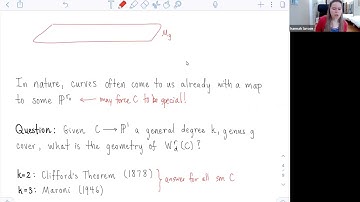 M_g
hannah larson
In nature, curves often come to us already with a map
to some ℙ^r. ← may force C to be special!
Question: Given C → ℙ¹ a general degree k, genus g
cover, what is the geometry of W^r_d(C)?
k=2: Clifford's Theorem (1878)
k=3: Maroni (1946)
} answer for all sm C